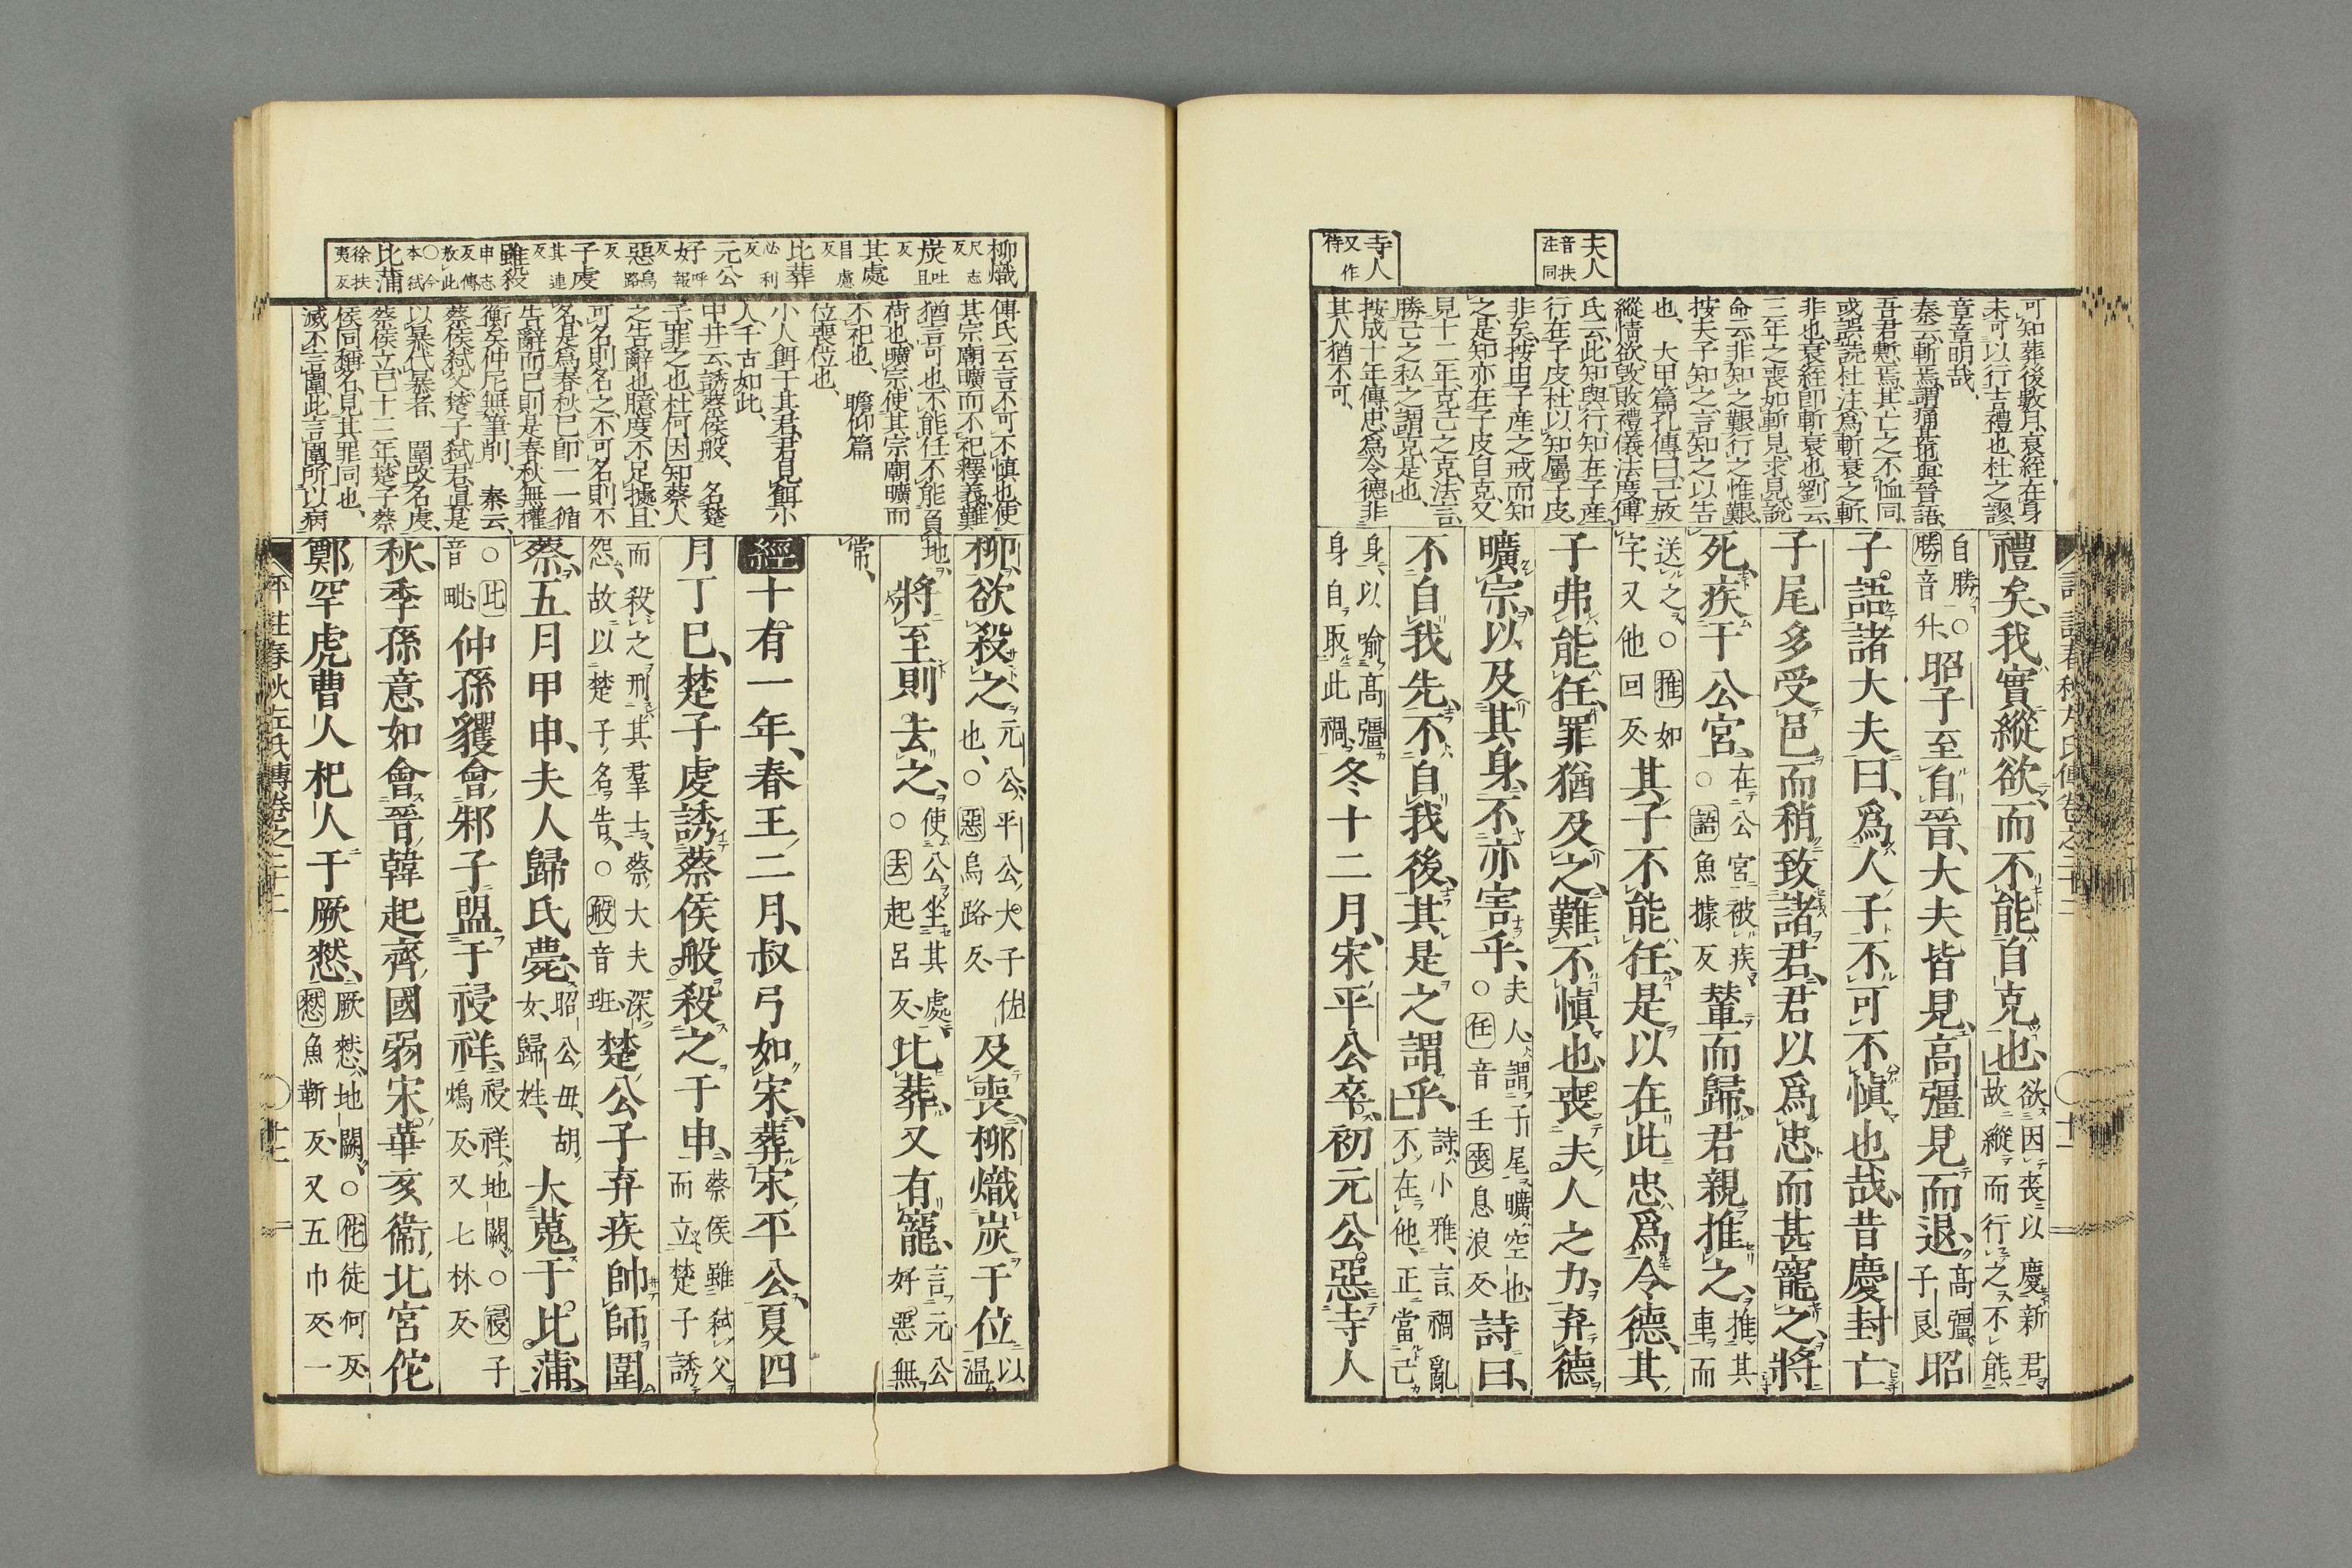 夫人
音扶
注同
寺人
又作
侍
可知葬後數月衰絰在身
未可以行吉禮也杜之謬
章章明哉、
秦云、斬焉、謂痛甚也與晉語、
吾君慙焉其亡之不恤同
或誤読杜注爲斬衰之斬
非也衰絰卽斬衰也劉云、
三年之喪如斬見求見說
命云、非知之艱行之惟艱、
按夫子知之言知之以告
也、大甲篇孔傳曰、己放
縱情欲毀敗禮儀法度傅
氏云此知與行、知在子產、
行在子皮杜以知屬子皮、
非矣按由子產之戒而知
之、是知亦在子皮自克又
見十二年克己之克法言、
勝己之私之謂克是也、
按成十年傳忠爲令德非
其人猶不可、
禮矣、我實縱欲、而不能自克也、
欲因喪以慶新君
故縱而行之不能
自勝○
勝音升、
昭子至自晉、大夫皆見、高彊見而退、
高彊、
子良
昭
子語諸大夫曰、爲人子不可不愼也哉、昔慶封亡、
子尾多受邑而稍致諸君、君以爲忠而甚寵之、將
死、疾于公宮、
在公宮被疾
○語魚據反
輦而歸、君親推之、
推其
車而
送之、○推如
字、又他回反、
其子不能任、是以在此忠爲令德、其
子弗能任、罪猶及之、難不愼也、喪夫人之力、弃德
曠宗、以及其身、不亦害乎、
夫人、謂子尾、曠、空也
○任音壬喪息浪反、
詩曰、
不自我先、不自我後、其是之謂乎、
詩小雅、言禍亂
不在他、正當己
身、以喻高彊
身自取此禍、
冬十二月、宋平公卒、初元公惡寺人
柳熾
尺志
反
炭
吐且
反
其處
目慮
反
比葬
必利
反
元公
好
呼報
反
惡
烏路
反
子虔
其連
反
雖殺
申志
反傳
放此
○今
本弒
比蒲
徐扶
夷反
傳氏云言不可不愼也使
其宗廟曠而不祀釋義難
猶言可也不能任不能負
荷也曠宗使其宗廟曠而
不祀也、瞻仰篇
位喪位也、
小人餌于其君君見餌小
人、千古如此、
中井云、誘蔡侯般、名楚
子罪之也杜何因知蔡人
之告辭也臆度不足據且
可名則名之不可名則不
名是爲春秋已卽一一循
告辭而已則是春秋無權
衡矣仲尼無筆削、秦云、
蔡侯弒父楚子弒君眞是
以暴代暴者、圍改名虔、
蔡侯立已十二年、楚子蔡
侯同稱名見其罪同也、
滅不言圍、此言圍所以病
柳欲殺之、
元公平公大子佐
也、○惡烏路反、
及喪、柳熾炭于位、
以溫
地、
將至則去之、
使公坐其處
○去起呂反、
比葬、又有寵、
言元公
好惡無
常、
經十有一年、春王二月、叔弓如宋、葬宋平公、夏四
月丁巳、楚子虔誘蔡侯般、殺之于申、
蔡侯雖弒父
而立楚子誘
而殺之刑其羣士、蔡大夫深
怨、故以楚子名告、○般音班、
楚公子弃疾帥師圍
蔡、五月甲申、夫人歸氏薨、
昭公母、胡
女、歸姓、
大蒐于比蒲、
○比
音毗、
仲孫貜會邾子盟于祲祥、
祲祥、地闕、○祲子
鴆反、又七林反、
秋、季孫意如會晉韓起齊國弱宋華亥衞北宮佗
鄭罕虎曹人杞人于厥憖、
厥憖、地闕、○佗徒何反、
憖魚靳反、又五巾反、一
評註春秋左氏傳卷之二十二